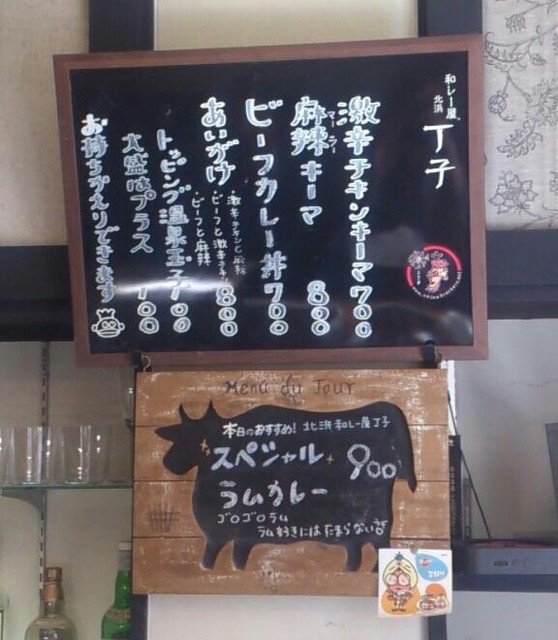 和レー屋
北浜
丁子
激辛チキンキーマ700
マーラー
麻辣キーマ 800
ビーフカレー丼700
あいがけ 800
・激辛チキンと麻辣
・ビーフと激辛チキン
・ビーフと麻辣
トッピング温泉玉子100
大盛はプラス 100
お持ちかえりできます
Menu du Jour
本日のおすすめ! 北浜 和レー屋丁子
スペシャル 900
ラムカレー
ゴロゴロラム
ラム好きにはたまらない